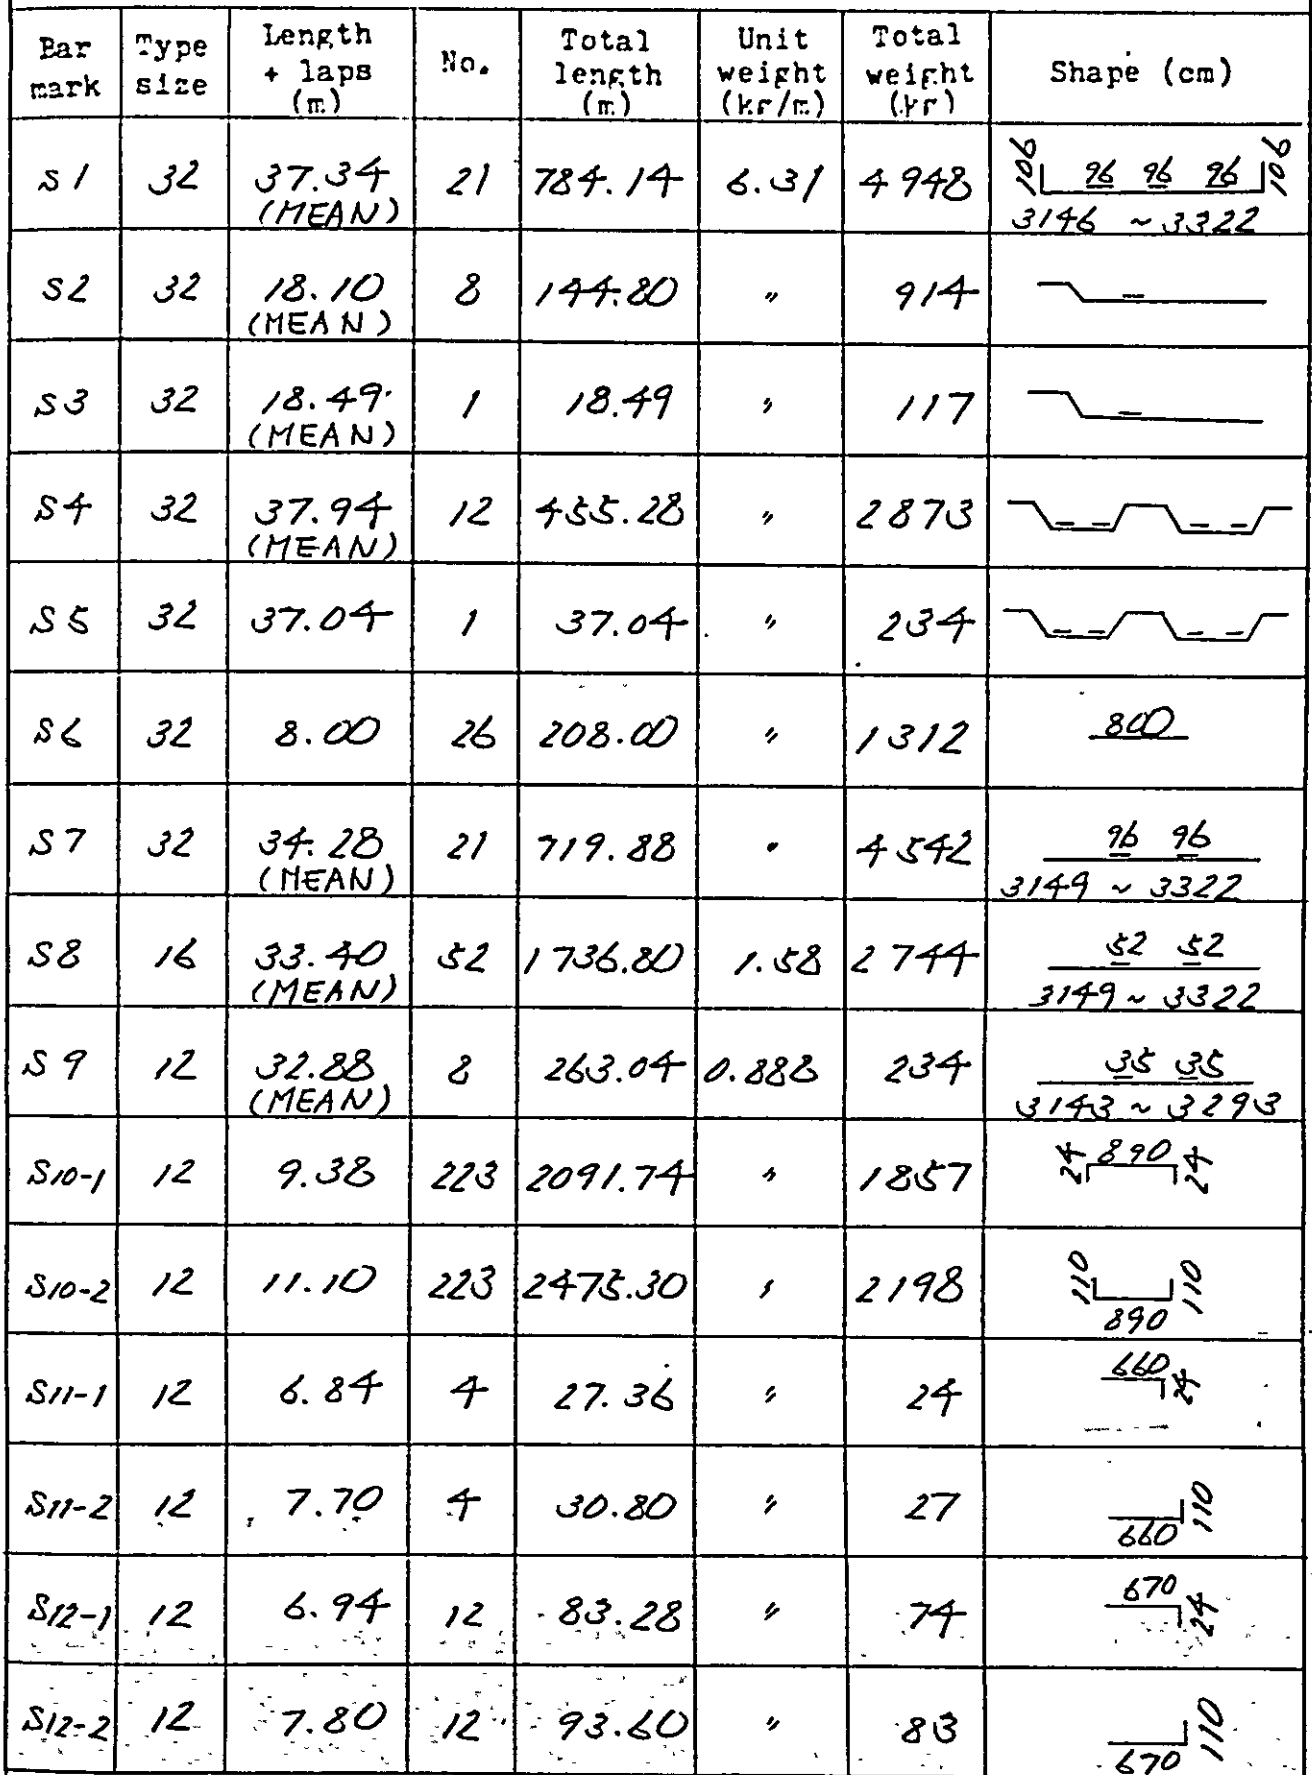 Bar mark | Type size | Length + laps (m) | No. | Total length (m) | Unit weight (kg/m) | Total weight (kg) | Shape (cm)
S1 | 32 | 37.34 (MEAN) | 21 | 784.14 | 6.31 | 4948 | 106 96 96 96 106 3146 ~ 3322
S2 | 32 | 18.10 (MEAN) | 8 | 144.80 | " | 914 |
S3 | 32 | 18.49 (MEAN) | 1 | 18.49 | " | 117 |
S4 | 32 | 37.94 (MEAN) | 12 | 455.28 | " | 2873 |
S5 | 32 | 37.04 | 1 | 37.04 | " | 234 |
S6 | 32 | 8.00 | 26 | 208.00 | " | 1312 | 800
S7 | 32 | 34.28 (MEAN) | 21 | 719.88 | " | 4542 | 96 96 3149 ~ 3322
S8 | 16 | 33.40 (MEAN) | 52 | 1736.80 | 1.58 | 2744 | 52 52 3149 ~ 3322
S9 | 12 | 32.88 (MEAN) | 8 | 263.04 | 0.888 | 234 | 35 35 3143 ~ 3293
S10-1 | 12 | 9.38 | 223 | 2091.74 | " | 1857 | 24 890 24
S10-2 | 12 | 11.10 | 223 | 2475.30 | " | 2198 | 110 890 110
S11-1 | 12 | 6.84 | 4 | 27.36 | " | 24 | 660 24
S11-2 | 12 | 7.70 | 4 | 30.80 | " | 27 | 660 110
S12-1 | 12 | 6.94 | 12 | 83.28 | " | 74 | 670 24
S12-2 | 12 | 7.80 | 12 | 93.60 | " | 83 | 670 110